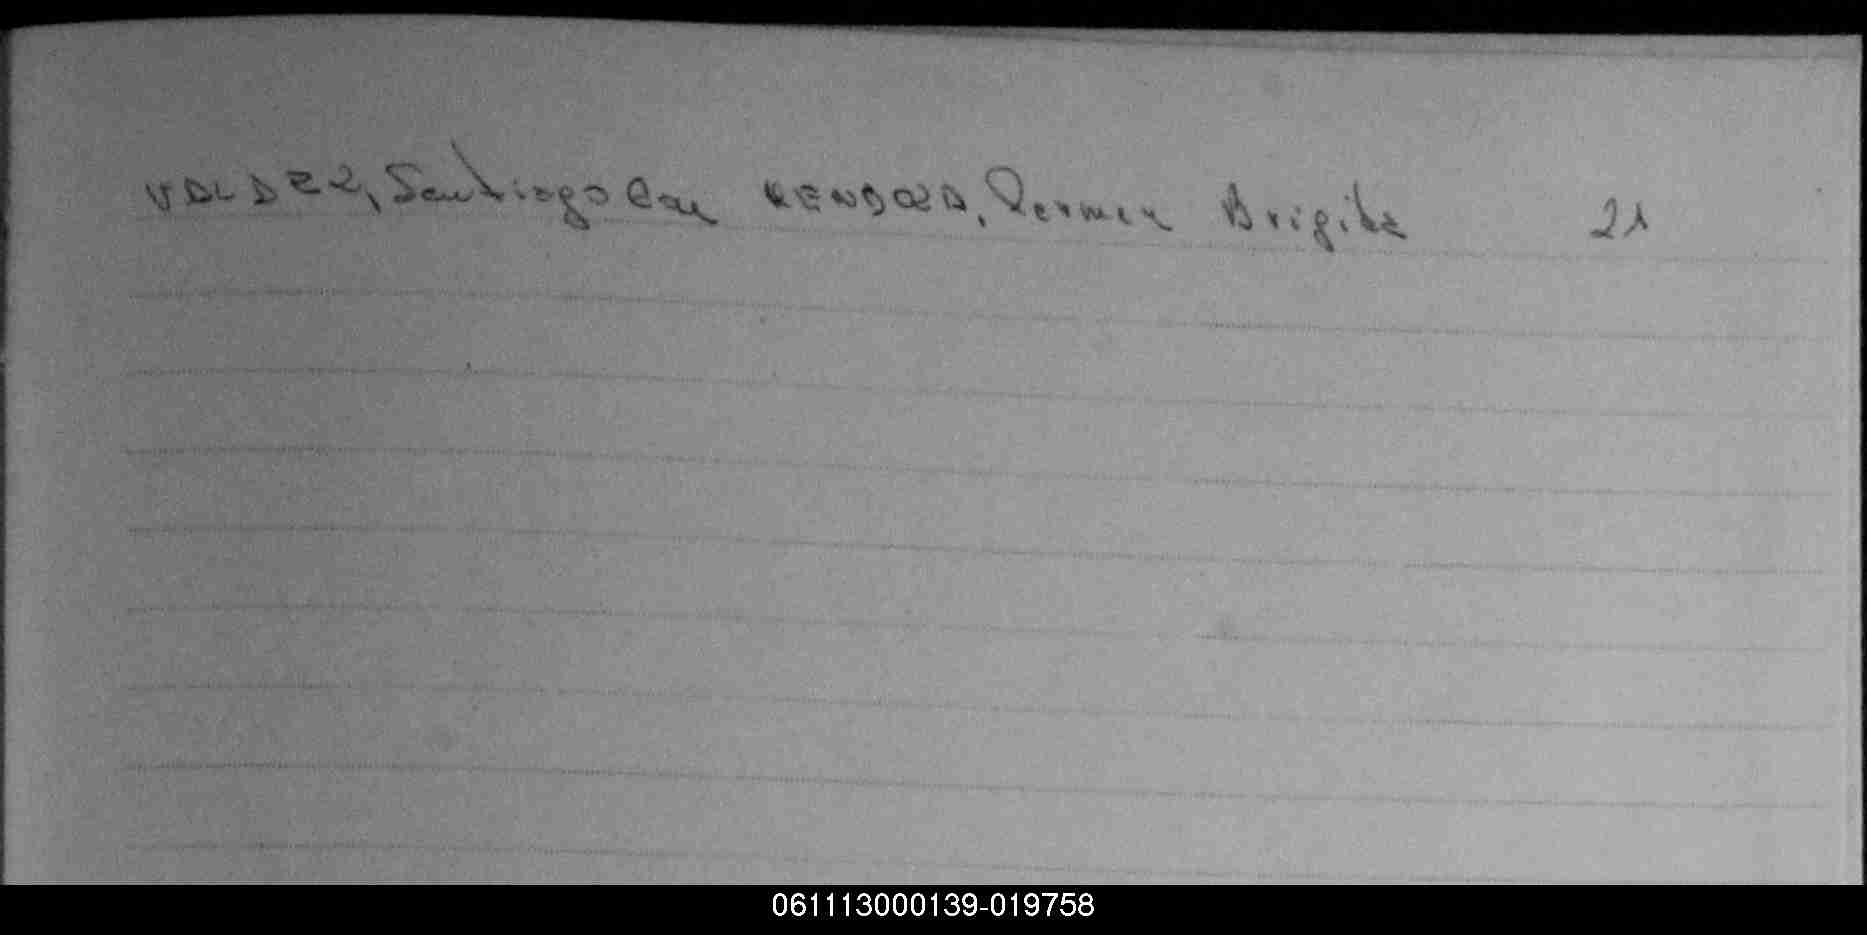 VALDEZ, Santiago Con MENDOZA, Carmen Brigita 21
061113000139-019758